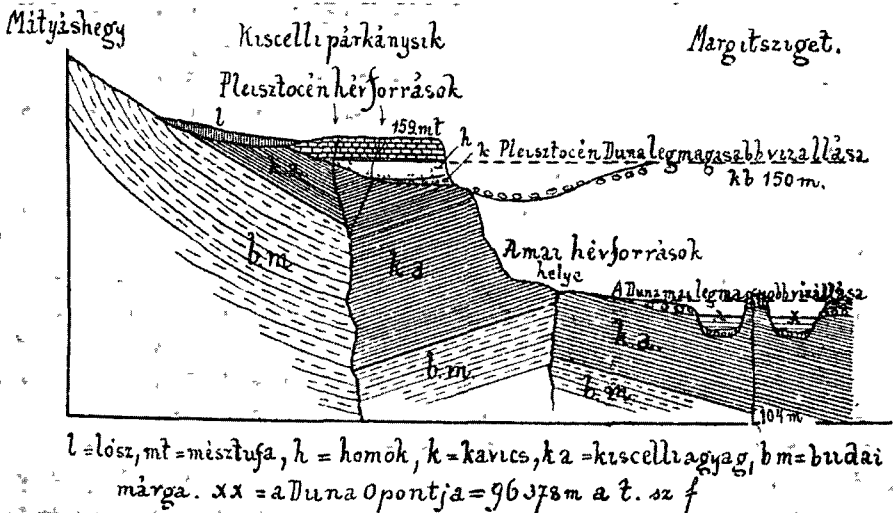 Mátyáshegy
Kiscelli párkánysík
Margitsziget.
Pleisztocén hévforrások
l
159 mt
h
k Pleisztocén Duna legmagasabb vizállása
kb 150 m.
k a.
b m
k a
A mai hévforrások
helye
A Duna mai legnagyobb vizállása
x
x
k a.
b m.
b m.
104 m
l = lősz, mt = mésztufa, h = homok, k = kavics, ka = kiscelli agyag, bm = budai
márga. xx = a Duna 0 pontja = 96 378 m a t. sz f